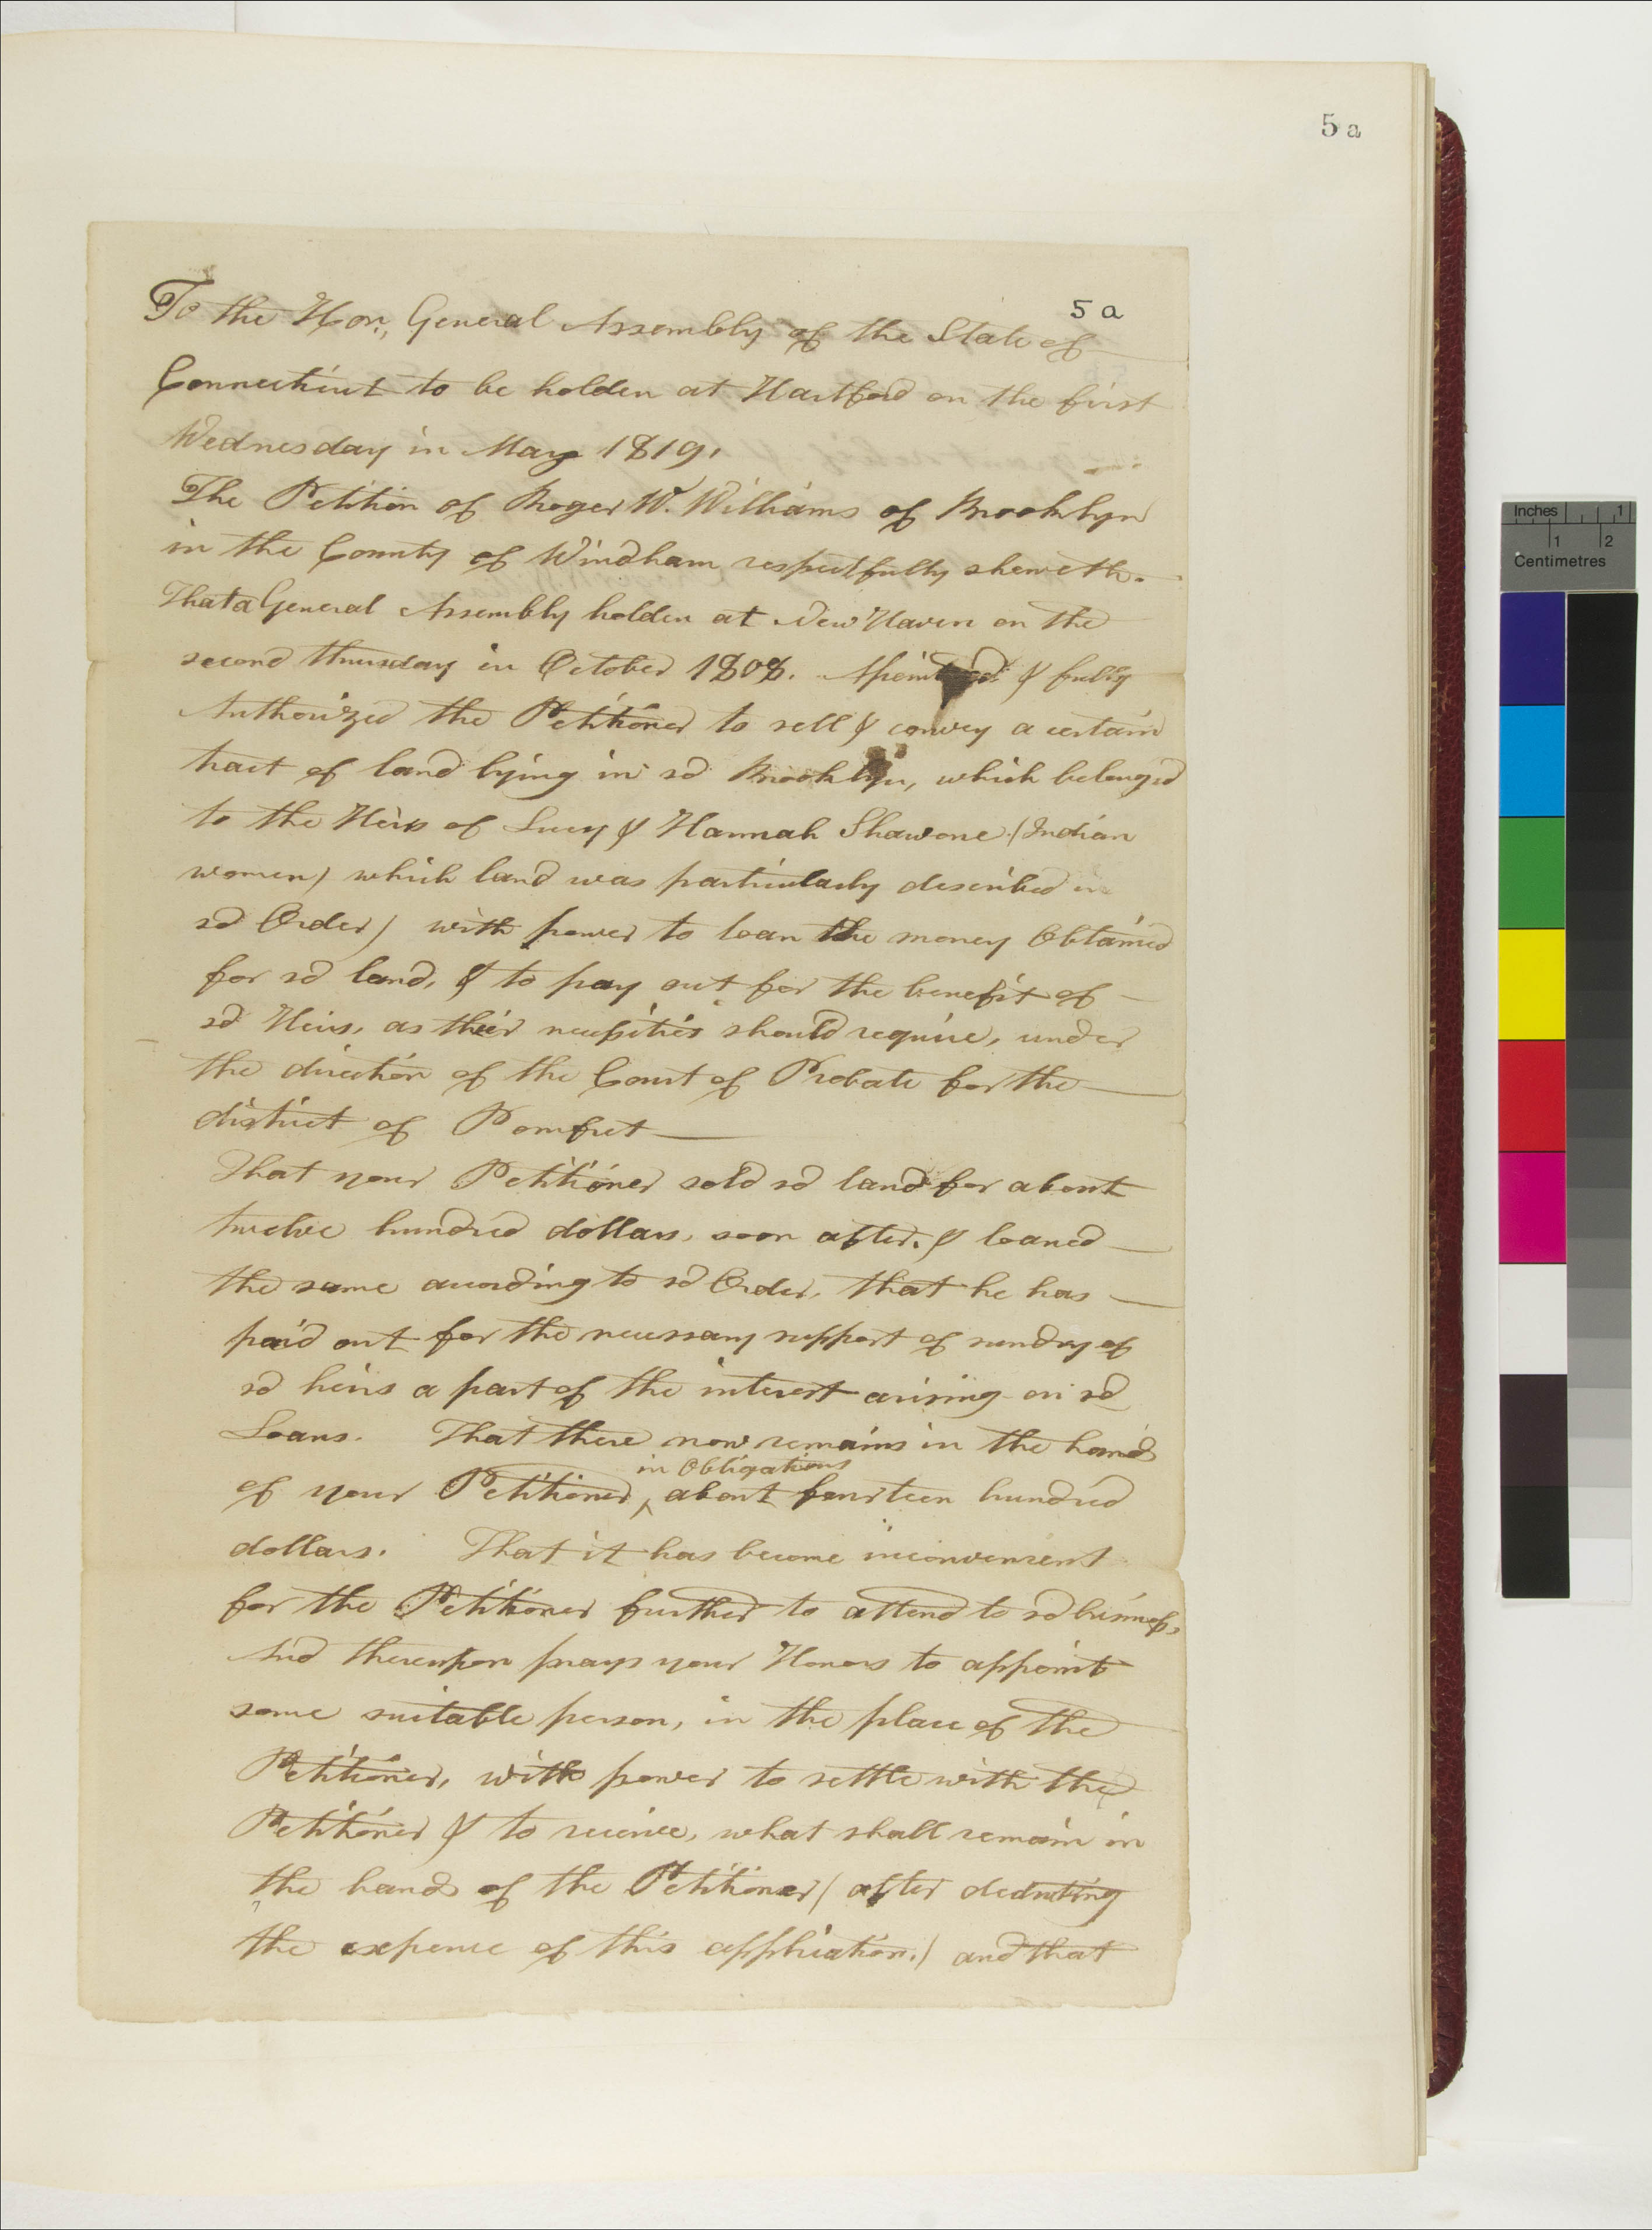 5 a
5 a
To the Hon. General Assembly of the State of
Connecticut to be holden at Hartford on the first
Wednesday in May 1819.
The Petition of Roger W. Williams of Brooklyn
in the County of Windham respectfully sheweth.
That a General Assembly holden at New Haven on the
second thursday in October 1808. Apointed & fully
Authorized the Petitioner to sell & convey a certain
tract of land lying in sd Brooklyn, which belonged
to the Heirs of Lucy & Hannah Shawone (Indian
women) which land was particularly described in
sd Order) with power to loan the money Obtained
for sd land, & to pay out for the benefit of
sd Heirs, as their necessities should require, under
the direction of the Court of Probate for the
district of Pomfret
That your Petitioner sold sd land for about
twelve hundred dollars, soon after. & loaned
the same according to sd Order, that he has
paid out for the necessary support of sundry of
sd heirs a part of the interest arising on sd
Loans. That there now remains in the hands
in Obligations
of your Petitioner ^ about fourteen hundred
dollars. That it has become inconvenient
for the Petitioner further to attend to sd business,
And thereupon prays your Honors to appoint
some suitable person, in the place of the
Petitioner, with power to settle with the
Petitioner & to receive, what shall remain in
the hands of the Petitioner (after deducting
the expence of this application.) and that
Inches 1
1 2
Centimetres